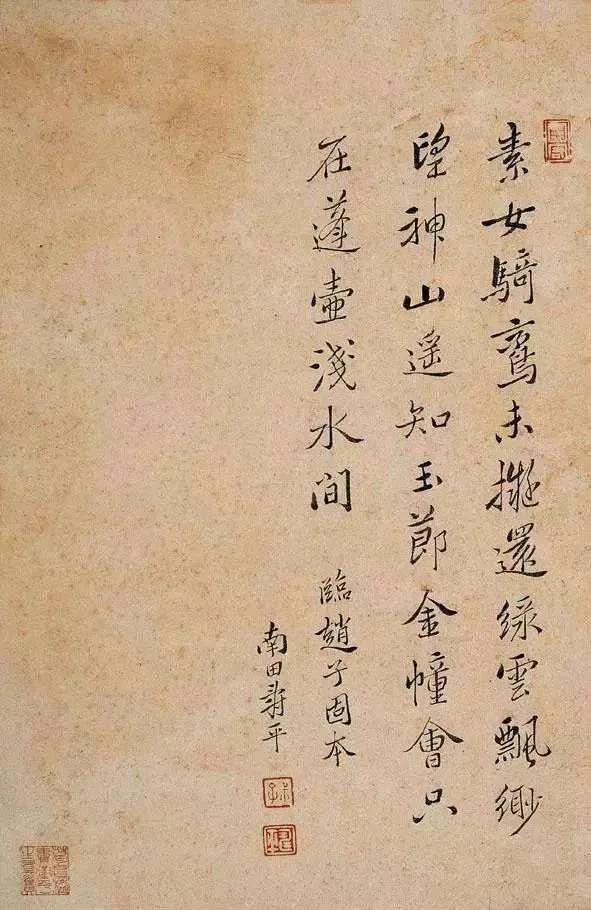 素女騎鸞未擬還綠雲飄緲
望神山遥知玉節金幢會只
在蓬壺淺水间
臨趙子固本
南田壽平